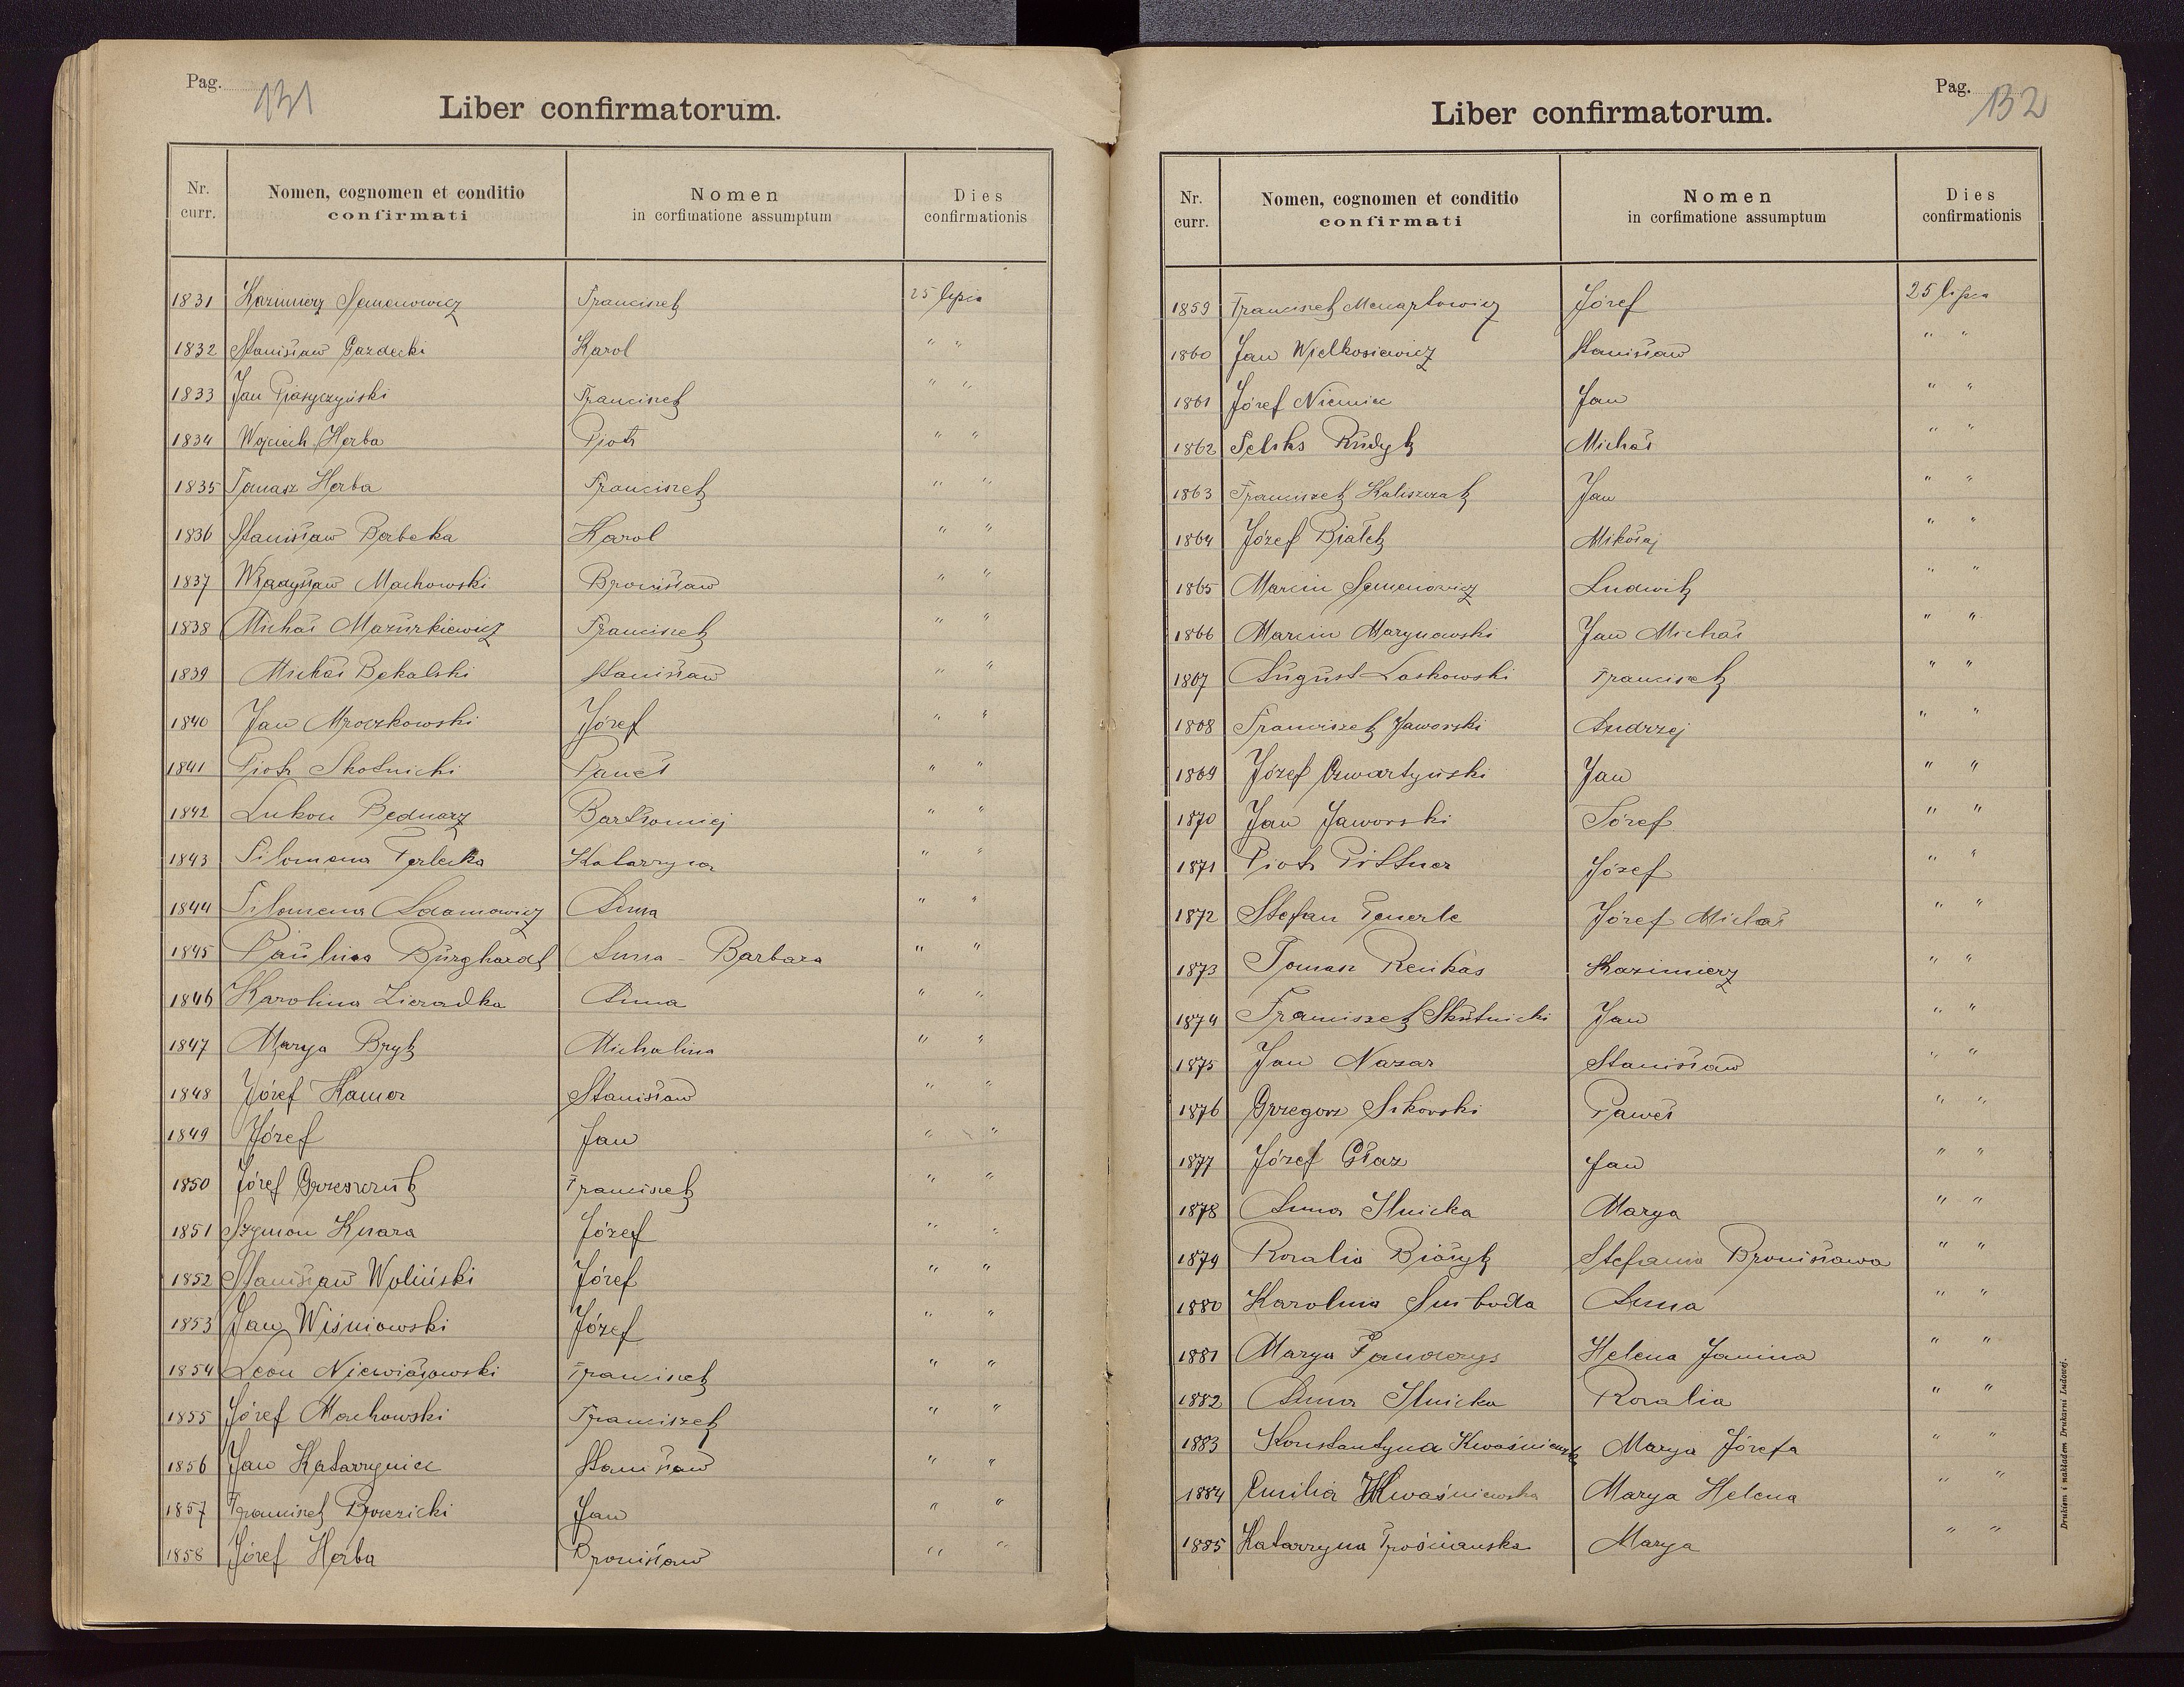 Pag. 131
Liber confirmatorum.
Nr. curr. Nomen, cognomen et conditio confirmati Nomen in corfimatione assumptum Dies confirmationis
1831 Kazimierz Semenowicz Franciszek 25 lipca
1832 Stanisław Gazdecki Karol " "
1833 Jan Piasyczyński Franciszek " "
1834 Wojciech Herba Piotr " "
1835 Tomasz Herba Franciszek " "
1836 Stanisław Berbeka Karol " "
1837 Władysław Machowski Bronisław " "
1838 Michał Mazurkiewicz Franciszek " "
1839 Michał Bekalski Stanisław " "
1840 Jan Mroczkowski Józef " "
1841 Piotr Skotnicki Paweł " "
1842 Bednarz Bartłomiej " "
1843 Filomena Terlecka Katarzyna " "
1844 Filomena Adamowicz Anna " "
1845 Paulina Burghardt Anna - Barbara " "
1846 Karolina Zieradka Anna " "
1847 Marya Bryk Michalina " "
1848 Józef Hamor Stanisław " "
1849 Józef Jan " "
1850 Józef Grzeszczuk Franciszek " "
1851 Szymon Knara Józef " "
1852 Stanisław Woliński Józef " "
1853 Jan Wiśniowski Józef " "
1854 Leon Niewiadowski Franciszek " "
1855 Józef Machowski Franciszek " "
1856 Jan Katarzyniec Stanisław " "
1857 Franciszek Brzezicki Jan " "
1858 Józef Herba Bronisław " "
Pag. 132
Liber confirmatorum.
Nr. curr. Nomen, cognomen et conditio confirmati Nomen in corfimatione assumptum Dies confirmationis
1859 Franciszek Menartowicz Józef 25 lipca
1860 Jan Wielkosiewicz Stanisław " "
1861 Józef Niemiec Jan " "
1862 Feliks Rudyk Michał " "
1863 Franciszek Kaliszczak Jan " "
1864 Józef Białek Mikołaj " "
1865 Marcin Semenowicz Ludwik " "
1866 Marcin Marynowski Jan Michał " "
1867 August Laskowski Franciszek " "
1868 Franciszek Jaworski Andrzej " "
1869 Józef Czwartyński Jan " "
1870 Jan Jaworski Józef " "
1871 Piotr Pittner Józef " "
1872 Stefan Józef Michał " "
1873 Tomasz Renkas Kazimierz " "
1874 Franciszek Skutnicki Jan " "
1875 Jan Nazar Stanisław " "
1876 Grzegorz Sikorski Paweł " "
1877 Józef Głaz Jan " "
1878 Anna Ilnicka Marya " "
1879 Rozalia Białyk Stefania Bronisława " "
1880 Karolina Swoboda Anna " "
1881 Marya Helena Janina " "
1882 Anna Ilnicka Rozalia " "
1883 Konstantyna Kwaśniewska Marya Józefa " "
1884 Emilia Kwaśniewska Marya Helena " "
1885 Katarzyna Marya " "
Drukiem i nakładem Drukarni Ludowej.